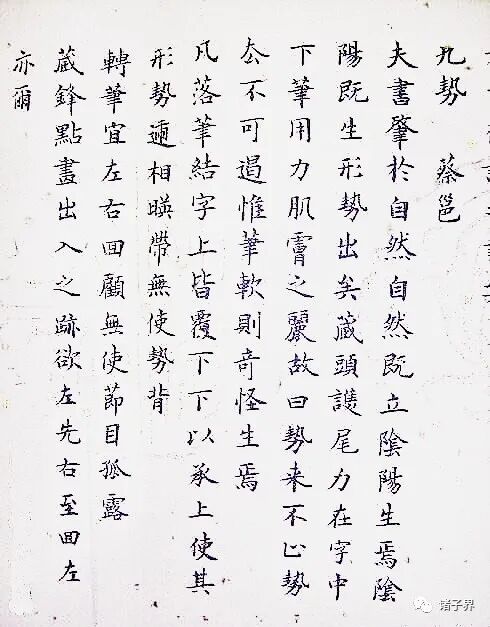 九勢 蔡邕
夫書肇於自然自然既立陰陽生焉陰
陽既生形勢出矣藏頭護尾力在字中
下筆用力肌膚之麗故曰勢来不止勢
厺不可遏惟筆軟則奇怪生焉
凡落筆結字上皆覆下下以承上使其
形勢遞相暎帶無使勢背
轉筆宜左右回顧無使節目孤露
蔵鋒點畫出入之跡欲左先右至回左
亦爾
诸子界